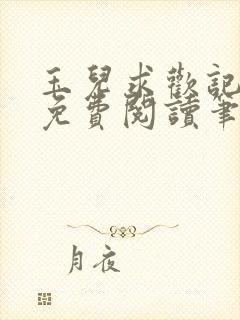 玉兒求歡記
免費閱讀筆
月夜